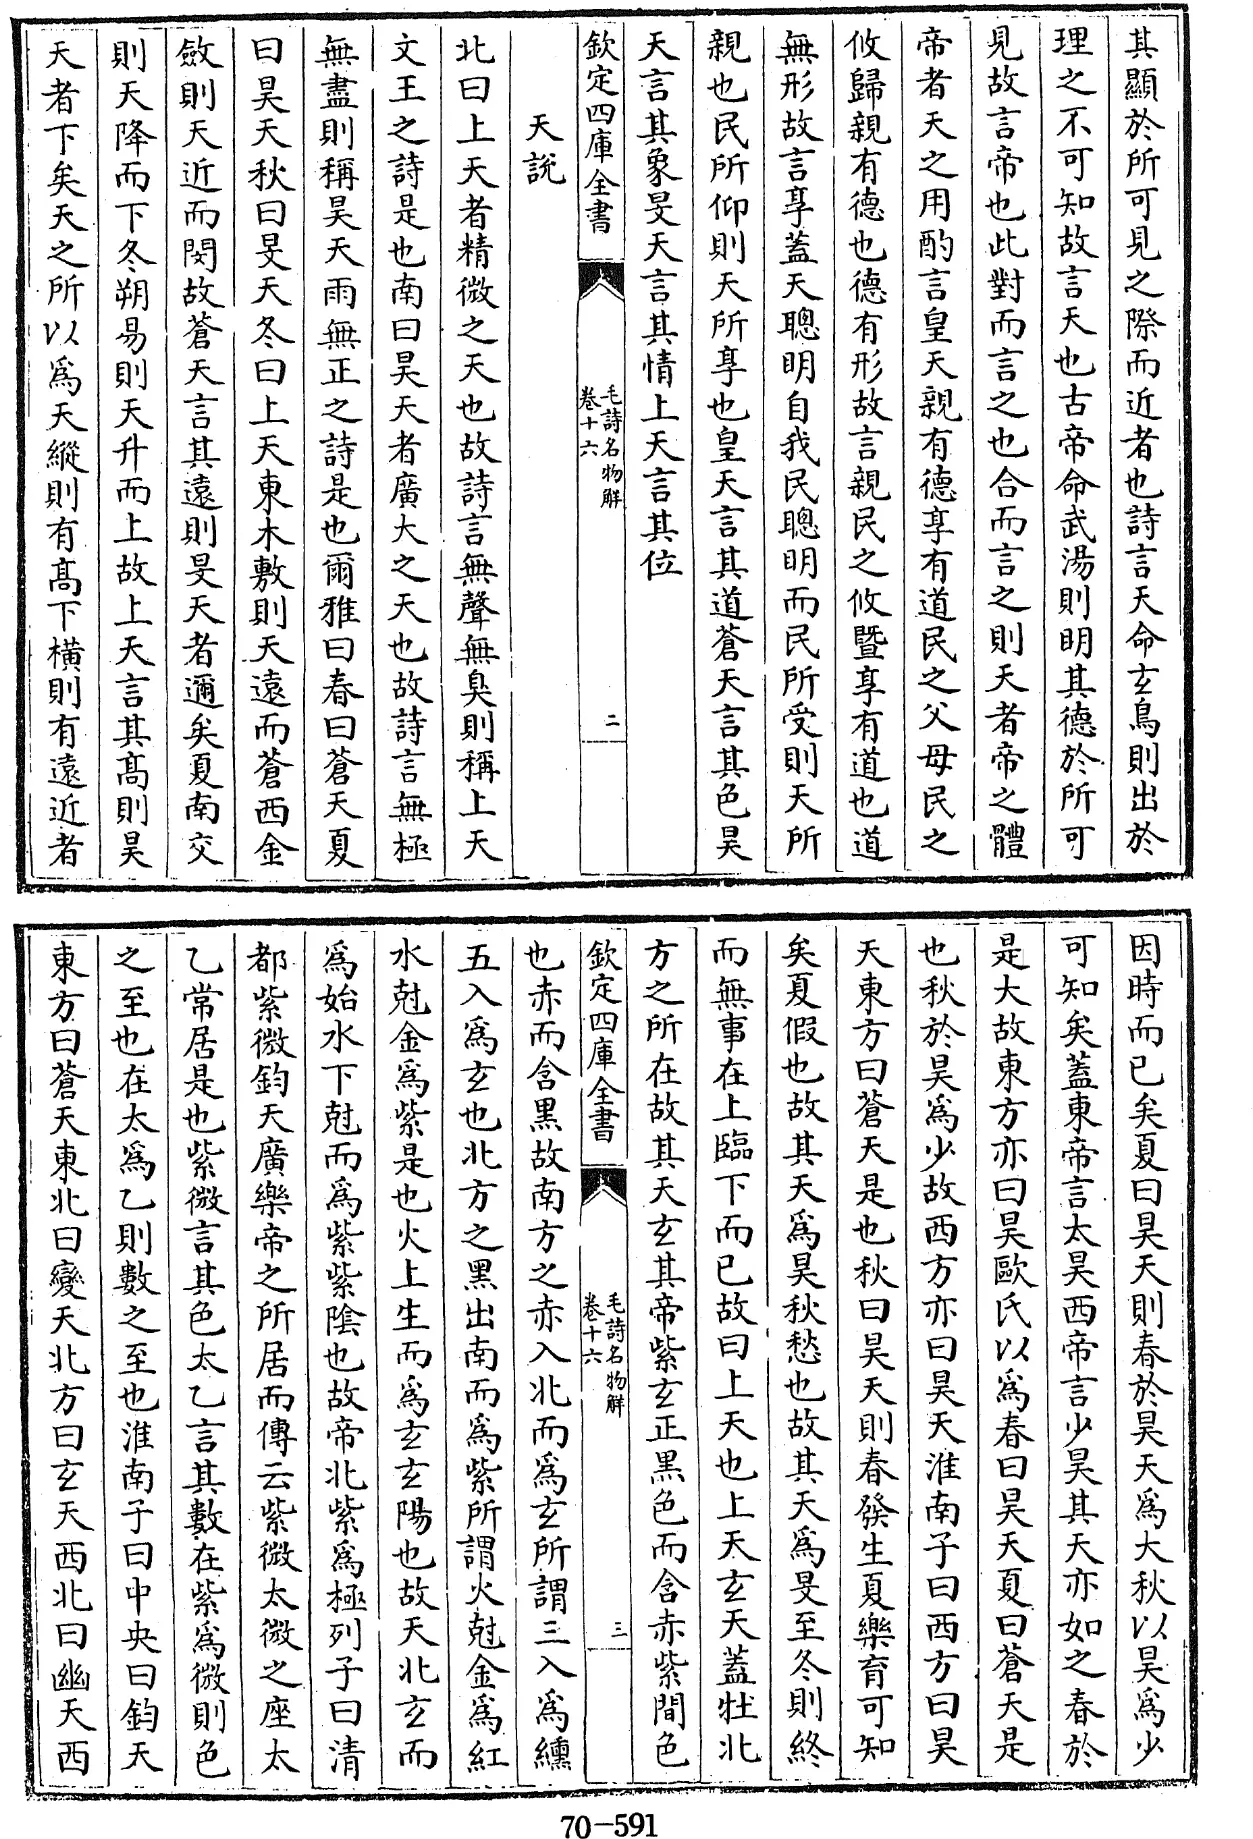 其顯於所可見之際而近者也詩言天命玄鳥則出於
理之不可知故言天也古帝命武湯則明其德於所可
見故言帝也此對而言之也合而言之則天者帝之體
帝者天之用酌言皇天親有德享有道民之父母民之
攸歸親有德也德有形故言親民之攸暨享有道也道
無形故言享蓋天聰明自我民聰明而民所受則天所
親也民所仰則天所享也皇天言其道蒼天言其色昊
天言其象旻天言其情上天言其位
欽定四庫全書
毛詩名物解
卷十六
二
天說
北曰上天者精微之天也故詩言無聲無臭則稱上天
文王之詩是也南曰昊天者廣大之天也故詩言無極
無盡則稱昊天雨無正之詩是也爾雅曰春曰蒼天夏
曰昊天秋曰旻天冬曰上天東木敷則天遠而蒼西金
斂則天近而閔故蒼天言其遠則旻天者邇矣夏南交
則天降而下冬朔易則天升而上故上天言其高則昊
天者下矣天之所以爲天縱則有高下橫則有遠近者
因時而已矣夏曰昊天則春於昊天爲大秋以昊爲少
可知矣蓋東帝言太昊西帝言少昊其天亦如之春於
是大故東方亦曰昊歐氏以爲春曰昊天夏曰蒼天是
也秋於昊爲少故西方亦曰昊天淮南子曰西方曰昊
天東方曰蒼天是也秋曰昊天則春發生夏樂育可知
矣夏假也故其天爲昊秋愁也故其天爲旻至冬則終
而無事在上臨下而已故曰上天也上天玄天蓋牡北
方之所在故其天玄其帝紫玄正黑色而含赤紫間色
欽定四庫全書
毛詩名物解
卷十六
三
也赤而含黑故南方之赤入北而爲玄所謂三入爲纁
五入爲玄也北方之黑出南而爲紫所謂火尅金爲紅
水尅金爲紫是也火上生而爲玄玄陽也故天北玄而
爲始水下尅而爲紫紫陰也故帝北紫爲極列子曰清
都紫微鈞天廣樂帝之所居而傳云紫微太微之座太
乙常居是也紫微言其色太乙言其數在紫爲微則色
之至也在太爲乙則數之至也淮南子曰中央曰鈞天
東方曰蒼天東北曰變天北方曰玄天西北曰幽天西
70-591